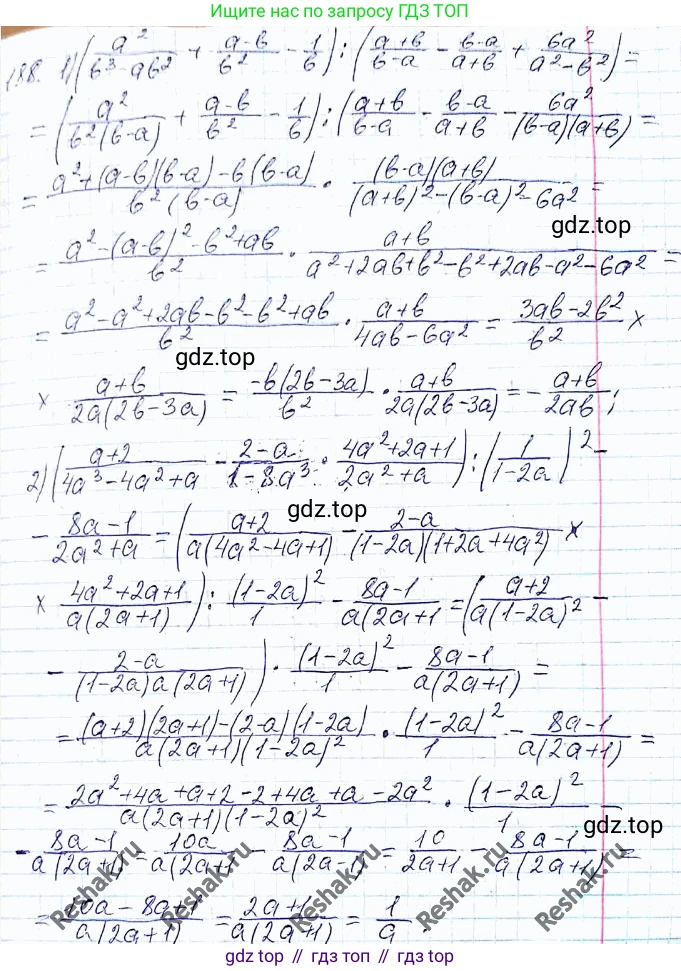 Пишите нам по запросу ГДЗ ТОП
188. 1) (a²/(b³-ab²) + (a-b)/b² - 1/b) : ((a+b)/(b-a) - (b-a)/(a+b) + 6a²/(a²-b²)) =
= (a²/(b²(b-a)) + (a-b)/b² - 1/b) : ((a+b)/(b-a) - (b-a)/(a+b) - 6a²/((b-a)(a+b))) =
= (a²+(a-b)(b-a)-b(b-a))/(b²(b-a)) · ((b-a)(a+b))/((a+b)²-(b-a)²-6a²) =
gdz.top
= (a²-(a-b)²-b²+ab)/b² · (a+b)/(a²+2ab+b²-b²+2ab-a²-6a²) =
= (a²-a²+2ab-b²-b²+ab)/b² · (a+b)/(4ab-6a²) = (3ab-2b²)/b² ×
gdz.top
× (a+b)/(2a(2b-3a)) = (-b(2b-3a))/b² · (a+b)/(2a(2b-3a)) = -(a+b)/(2ab);
2) ((a+2)/(4a³-4a²+a) - (2-a)/(1-8a³) · (4a²+2a+1)/(2a²+a)) : (1/(1-2a))² -
gdz.top
- (8a-1)/(2a²+a) = ((a+2)/(a(4a²-4a+1)) - (2-a)/((1-2a)(1+2a+4a²)) ×
× (4a²+2a+1)/(a(2a+1))) : (1-2a)²/1 - (8a-1)/(a(2a+1) = ((a+2)/(a(1-2a)²) -
- (2-a)/((1-2a)a(2a+1))) · (1-2a)²/1 - (8a-1)/(a(2a+1)) =
= ((a+2)(2a+1)-(2-a)(1-2a))/(a(2a+1)(1-2a)²) · (1-2a)²/1 - (8a-1)/(a(2a+1)) =
= (2a²+4a+a+2-2+4a+a-2a²)/(a(2a+1)(1-2a)²) · (1-2a)²/1 -
gdz.top
- (8a-1)/(a(2a+1)) = 10a/(a(2a+1) - (8a-1)/(a(2a-1)) = 10/(2a+1) - (8a-1)/(a(2a+1)) =
= (10a-8a+1)/(a(2a+1)) = (2a+1)/(a(2a+1)) = 1/a.
Reshak.ru Reshak.ru Reshak.ru Reshak.ru Reshak.ru
gdz.top gdz.top gdz.top gdz.top